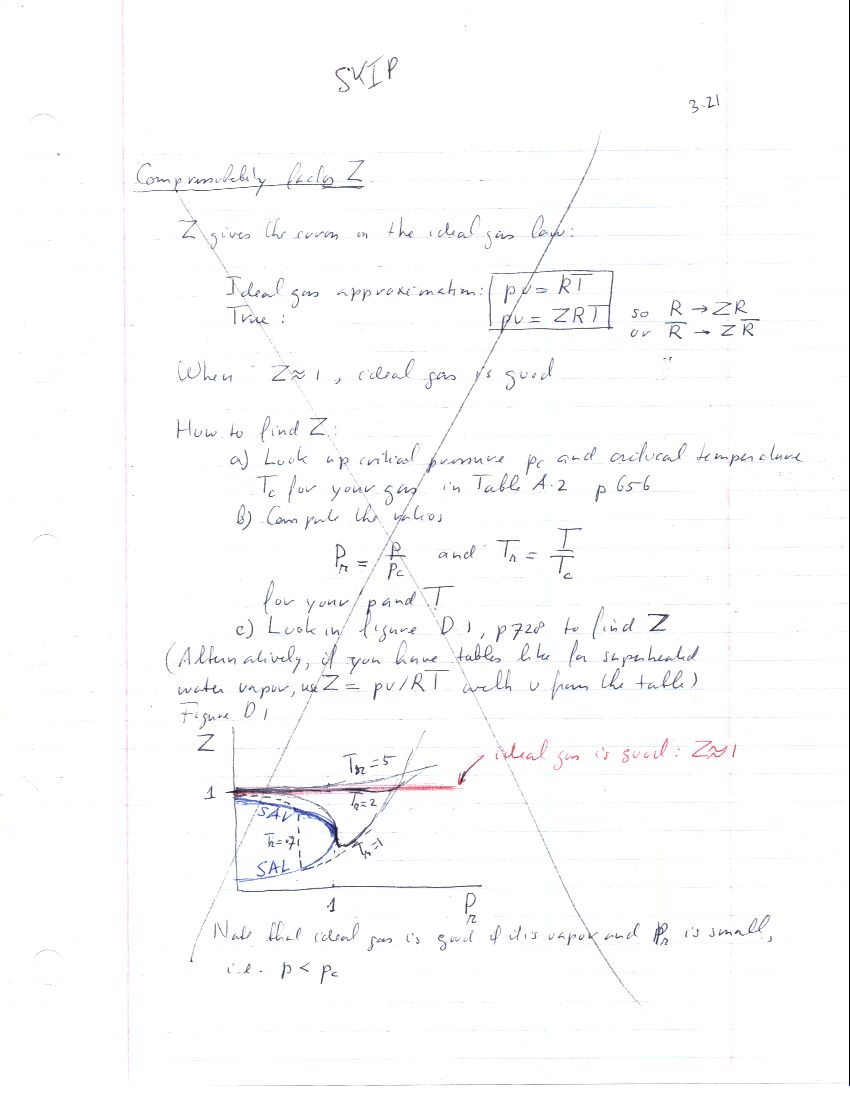 SKIP
3-21
Compressibility factor Z
Z gives the error in the ideal gas law:
Ideal gas approximation: pv = RT
True: pv = ZRT so R → ZR
or R̅ → ZR̅
When Z≈1, ideal gas is good
How to find Z:
a) Look up critical pressure pc and critical temperature
Tc for your gas in Table A.2 p 656
b) Compute the ratios
PR = p/pc and TR = T/Tc
for your p and T
c) Look in figure D.1, p728 to find Z
(Alternatively, if you have tables like for superheated
water vapor, use Z = pv/RT with v from the table)
Figure D1
Z
TR=5
ideal gas is good: Z≈1
1
TR=2
SAV
TR=.7
TR=1
SAL
1
PR
Note that ideal gas is good if it is vapor and PR is small,
i.e. p < pc